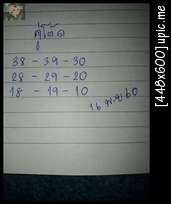 38 - 39 - 30
28 - 29 - 20
18 - 19 - 10
16 พ.ย 60
[448x600] upic.me